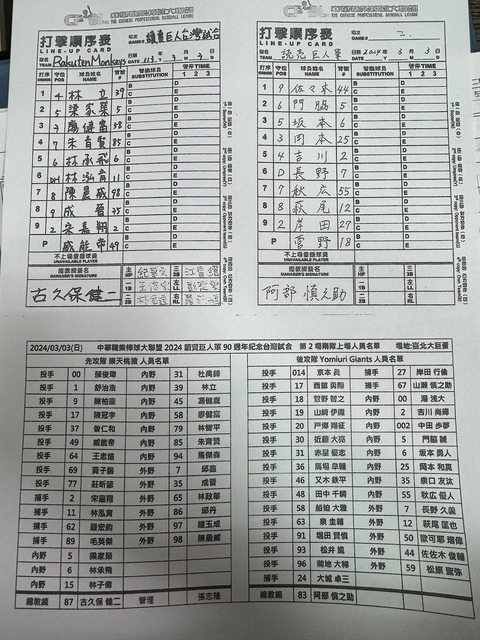 中華職業棒球大聯盟
THE CHINESE PROFESSIONAL BASEBALL LEAGUE
打擊順序表
LINE-UP CARD
隊名 TEAM Rakuten Monkeys
場次 GAME # 讀賣巨人台灣試合
日期 DATE 113 年 3 月 3 日
打序 ORDER 守位 POS 球員姓名 NAME 背號 #
替換球員 SUBSTITUTION
暫停 TIME 1 2 3
1 4 林立 39
2 5 梁家榮 5
3 7 廖健富 58
4 7 朱育賢 85
5 6 林承飛 6
6 林泓育 11
7 8 陳晨威 98
8 9 成晉 35
9 2 宋嘉翔 2
P 威能帝 49
不上場登錄球員
UNAVAILABLE PLAYER
總教練簽名
MANAGER'S SIGNATURE
古久保健二
中華職業棒球大聯盟
THE CHINESE PROFESSIONAL BASEBALL LEAGUE
打擊順序表
LINE-UP CARD
隊名 TEAM 読売巨人軍
場次 GAME # 二
日期 DATE 2024 年 3 月 3 日
打序 ORDER 守位 POS 球員姓名 NAME 背號 #
替換球員 SUBSTITUTION
暫停 TIME 1 2 3
1 9 佐々木 44
2 6 門脇 5
3 5 坂本 6
4 3 岡本 25
5 4 吉川 2
6 D 長野 7
7 7 秋広 55
8 8 萩尾 12
9 2 岸田 27
P 菅野 18
不上場登錄球員
UNAVAILABLE PLAYER
總教練簽名
MANAGER'S SIGNATURE
阿部慎之助
2024/03/03(日) 中華職業棒球大聯盟 2024 讀賣巨人軍 90 週年紀念台灣試合 第 2 場兩隊上場人員名單 場地:臺北大巨蛋
先攻隊 樂天桃猿 人員名單 後攻隊 Yomiuri Giants 人員名單
投手 00 蘇俊璋 內野 31 杜禹鋒 投手 014 京本 眞 捕手 27 岸田 行倫
投手 1 舒治浩 內野 39 林立 投手 17 西舘 勇陽 捕手 67 山瀬 慎之助
投手 9 陳柏豪 內野 45 馮健庭 投手 18 菅野 智之 內野 00 湯 浅大
投手 17 陳冠宇 內野 58 廖健富 投手 19 山﨑 伊織 內野 2 吉川 尚輝
投手 37 曾仁和 內野 79 林智平 投手 20 戸郷 翔征 內野 002 中田 歩夢
投手 49 威能帝 內野 85 朱育賢 投手 30 近藤 大亮 內野 5 門脇 誠
投手 64 王志煊 內野 94 馬傑森 投手 31 赤星 優志 內野 6 坂本 勇人
投手 69 莊子鵬 外野 7 邱鑫 投手 36 馬場 皐輔 內野 25 岡本 和真
投手 77 莊昕諺 外野 35 成晉 投手 46 又木 鉄平 內野 35 泉口 友汰
捕手 2 宋嘉翔 外野 65 林政華 投手 48 田中 千晴 內野 55 秋広 優人
捕手 11 林泓育 外野 86 邱丹 投手 58 船迫 大雅 外野 7 長野 久義
捕手 62 嚴宏鈞 外野 97 鍾玉成 投手 63 泉 圭輔 外野 12 萩尾 匡也
捕手 89 毛英傑 外野 98 陳晨威 投手 91 堀田 賢慎 外野 50 喬可耶 瑠偉
內野 5 梁家榮 投手 93 松井 颯 外野 44 佐佐木 俊輔
內野 6 林承飛 投手 96 菊地 大稀 外野 59 松原 聖弥
內野 15 林子偉 捕手 24 大城 卓三
總教練 87 古久保 健二 管理 張志隆 總教練 83 阿部 慎之助